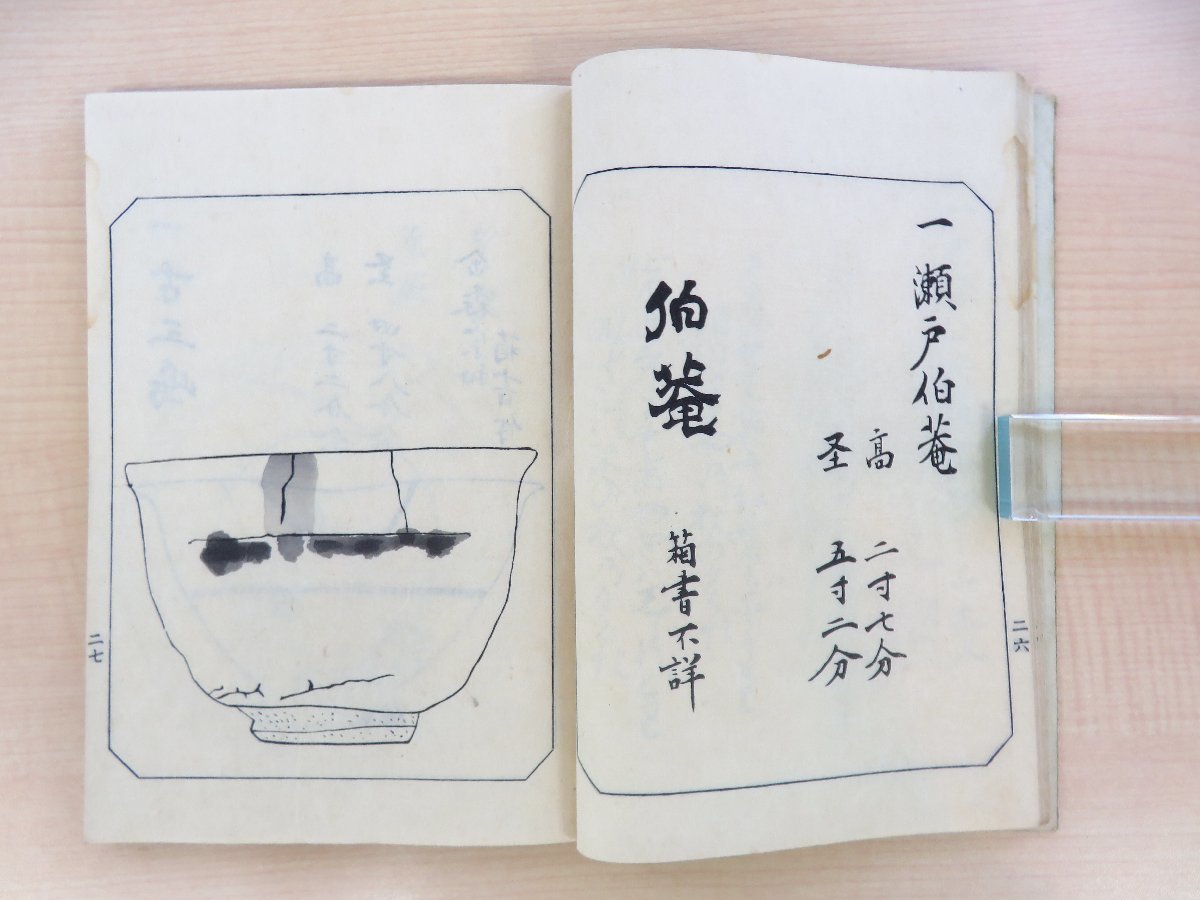 一 瀬戸伯菴
高 二寸七分
圣 五寸二分
伯菴 箱書不詳
二六
二七